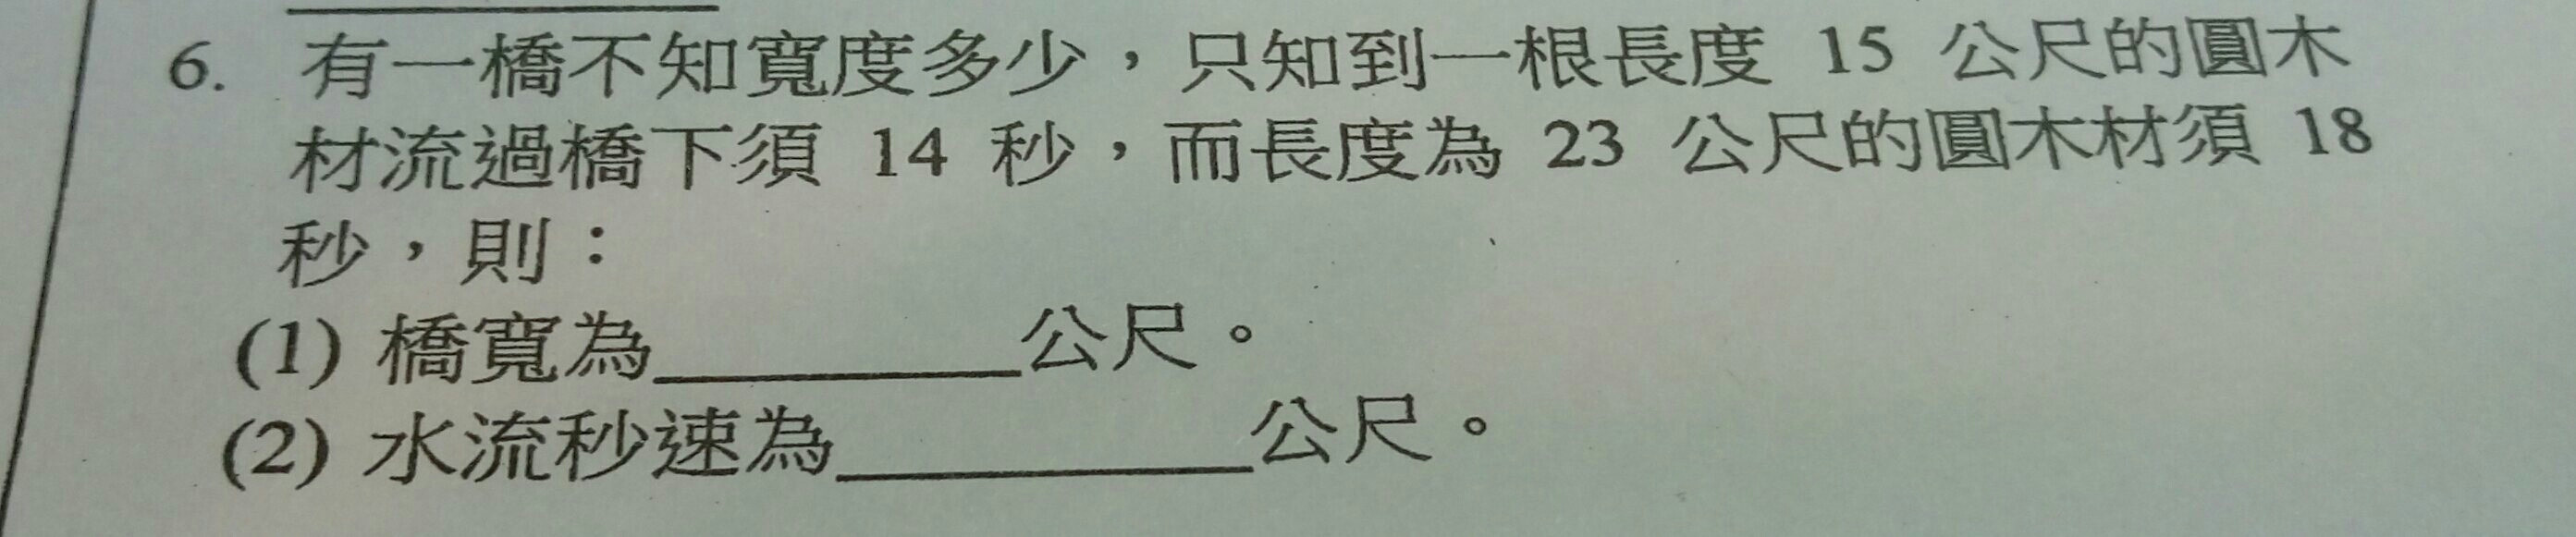 6. 有一橋不知寬度多少，只知到一根長度 15 公尺的圓木
材流過橋下須 14 秒，而長度為 23 公尺的圓木材須 18
秒，則：
(1) 橋寬為__________公尺。
(2) 水流秒速為___________公尺。